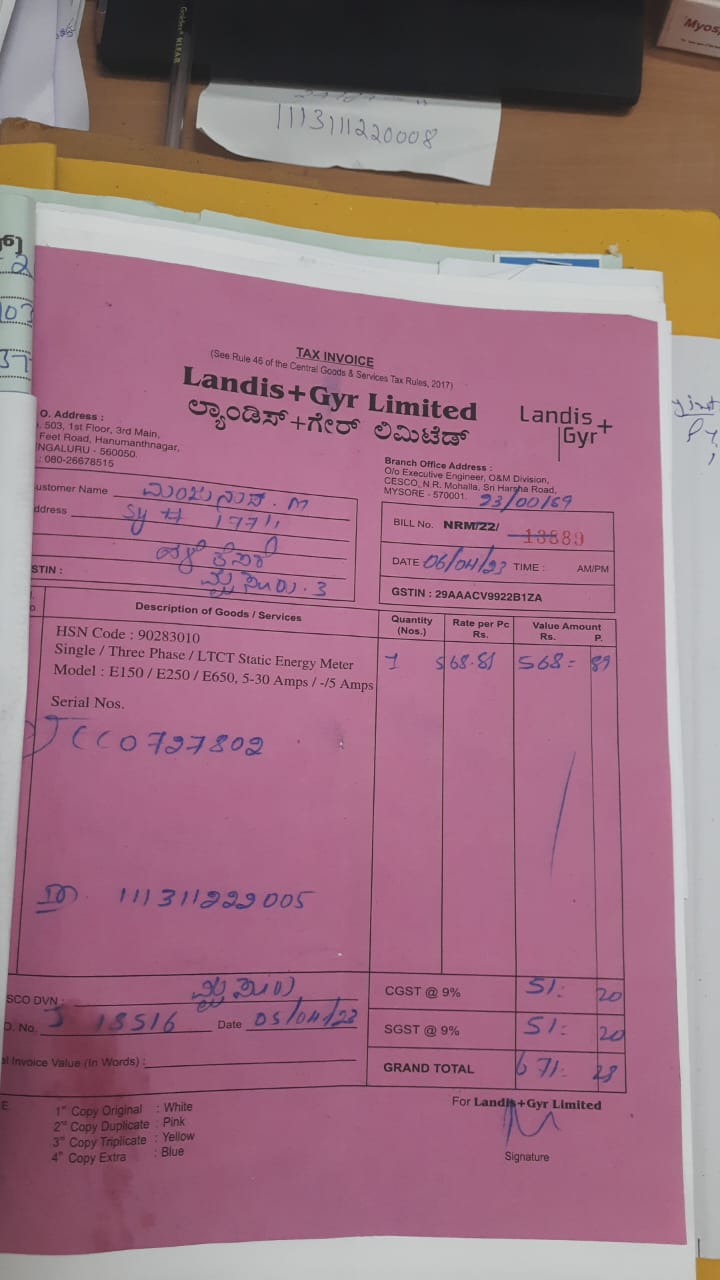 Golden KLEAR
Myosp
1113111220008
TAX INVOICE
(See Rule 46 of the Central Goods & Services Tax Rules, 2017)
Landis+Gyr Limited
ಲ್ಯಾಂಡಿಸ್+ಗೇರ್ ಲಿಮಿಟೆಡ್
Landis+
Gyr
O. Address :
503, 1st Floor, 3rd Main,
Feet Road, Hanumanthnagar,
NGALURU - 560050.
: 080-26678515
Branch Office Address :
O/o Executive Engineer, O&M Division,
CESCO, N.R. Mohalla, Sri Harsha Road,
MYSORE - 570001.
23/00/69
ustomer Name ಮಂಜುನಾಥ. M
ddress Sy # 177/1
ಹಳೆ ಕೆಸರೆ
ಮೈಸೂರು. 3
STIN :
BILL No. NRM/22/ 13889
DATE 06/04/23 TIME : AM/PM
GSTIN : 29AAACV9922B1ZA
Description of Goods / Services Quantity (Nos.) Rate per Pc Rs. Value Amount Rs. P.
HSN Code : 90283010
Single / Three Phase / LTCT Static Energy Meter 1 568.81 568= 89
Model : E150 / E250 / E650, 5-30 Amps / -/5 Amps
Serial Nos.
CC0727802
111311222005
SCO DVN : ಮೈಸೂರು
CGST @ 9% 51: 20
O. No. J 13516 Date 05/04/23
SGST @ 9% 51: 20
l Invoice Value (In Words) :
GRAND TOTAL 671: 28
E
1st Copy Original : White
2nd Copy Duplicate : Pink
3rd Copy Triplicate : Yellow
4th Copy Extra : Blue
For Landis+Gyr Limited
Signature